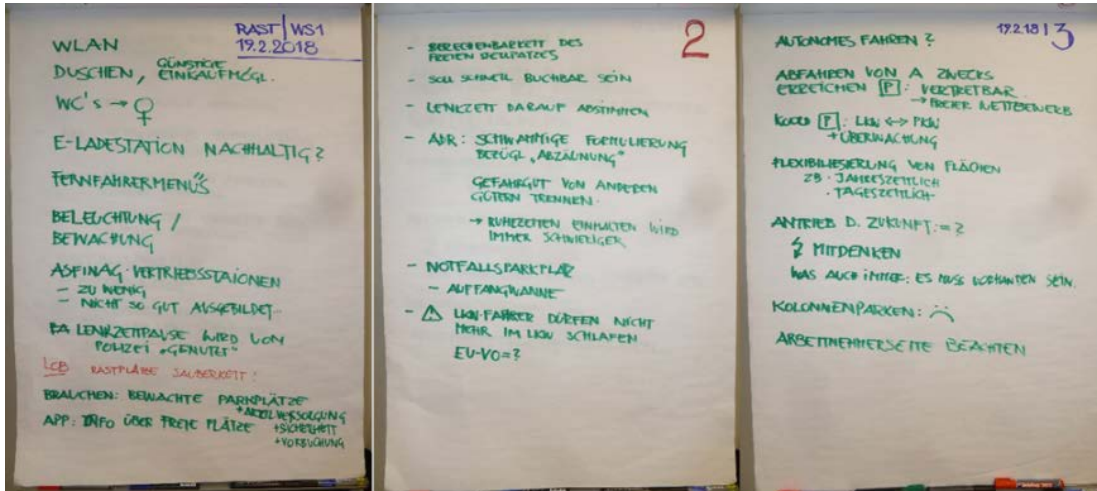 RAST | WS1
19.2.2018
WLAN
DUSCHEN, GÜNSTIGE EINKAUFMÖGL.
WC's → ♀
E-LADESTATION NACHHALTIG?
FERNFAHRERMENÜS
BELEUCHTUNG /
BEWACHUNG
ASFINAG-VERTRIEBSSTAIONEN
- ZU WENIG
- NICHT SO GUT AUSGEBILDET
LENKZEITPAUSE WIRD VON
POLIZEI „GENUTZT"
LOB RASTPLÄTZE SAUBERKEIT!
BRAUCHEN: BEWACHTE PARKPLÄTZE
APP: INFO ÜBER FREIE PLÄTZE
+SICHERHEIT
+VORBUCHUNG
2
- BERECHENBARKEIT DES
FREIEN
- SOLL SCHNELL BUCHBAR SEIN
- LENKZEIT DARAUF ABSTIMMEN
- ADR: SCHWAMMIGE FORMULIERUNG
BEZÜGL „ABZÄUNUNG"
GEFAHRGUT VON ANDEREN
GÜTERN TRENNEN.
→ RUHEZEITEN EINHALTEN WIRD
IMMER SCHWIERIGER
- NOTFALLSPARKPLATZ
- AUFFANGWANNE
- ⚠ LKW-FAHRER DÜRFEN NICHT
MEHR IM LKW SCHLAFEN
EU-VO=?
19.2.18 | 3
AUTONOMES FAHREN?
ABFAHREN VON A ZWECKS
ERREICHEN P: VERTRETBAR
→ FREIER WETTBEWERB
P: LKW <-> PKW
+ÜBERWACHUNG
FLEXIBILIESIERUNG VON FLÄCHEN
ZB · JAHRESZEITLICH
· TAGESZEITLICH
ANTRIEB D. ZUKUNFT := ?
MITDENKEN
WAS AUCH IMMER: ES MUSS VORHANDEN SEIN.
KOLONNENPARKEN: ☹
ARBEITNEHMERSEITE BEACHTEN